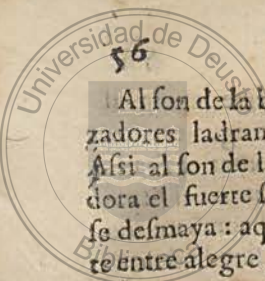 Universidad de Deusto
56
Al ſon de la
zadores ladran
Aſsi al ſon de l
dora el fuerte ſ
ſe deſmaya : aq
te entre alegre